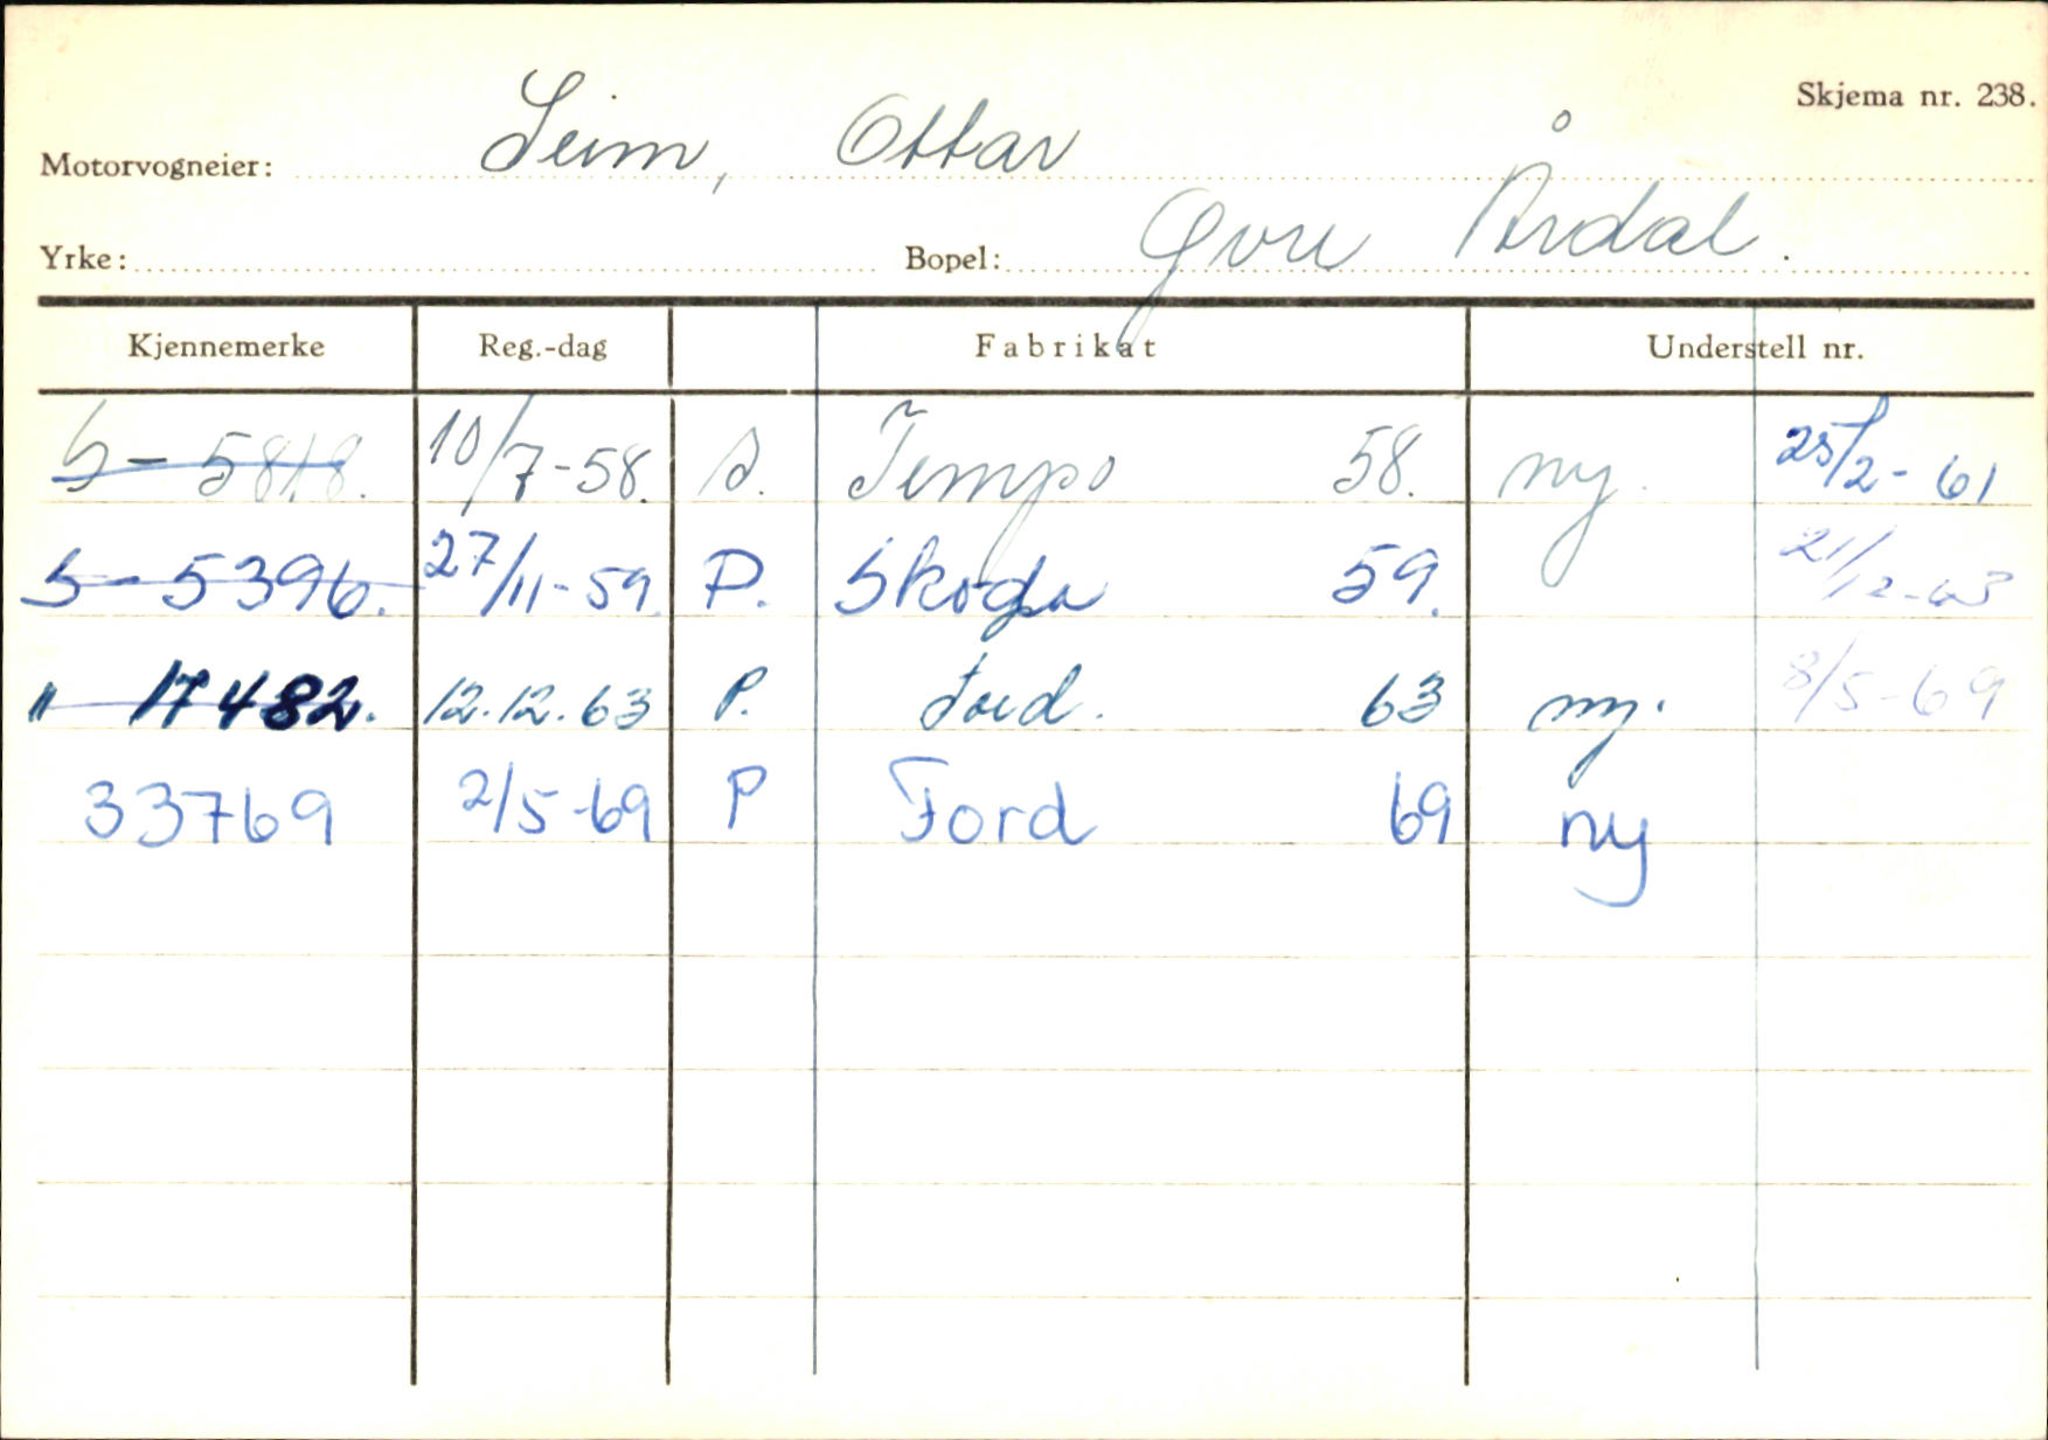 Skjema nr. 238.
Motorvogneier: Seim, Ottar
Yrke: Bopel: Øvre Årdal.
Kjennemerke Reg.-dag Fabrikat Understell nr.
S - 5818. 10/7-58. S. Tempo 58. ny. 25/2-61
S - 5396. 27/11-59. P. Skoda 59. 21/12-63
" 17482. 12.12.63 P. Ford. 63 ny. 8/5-69
33769 2/5-69 P Ford 69 ny